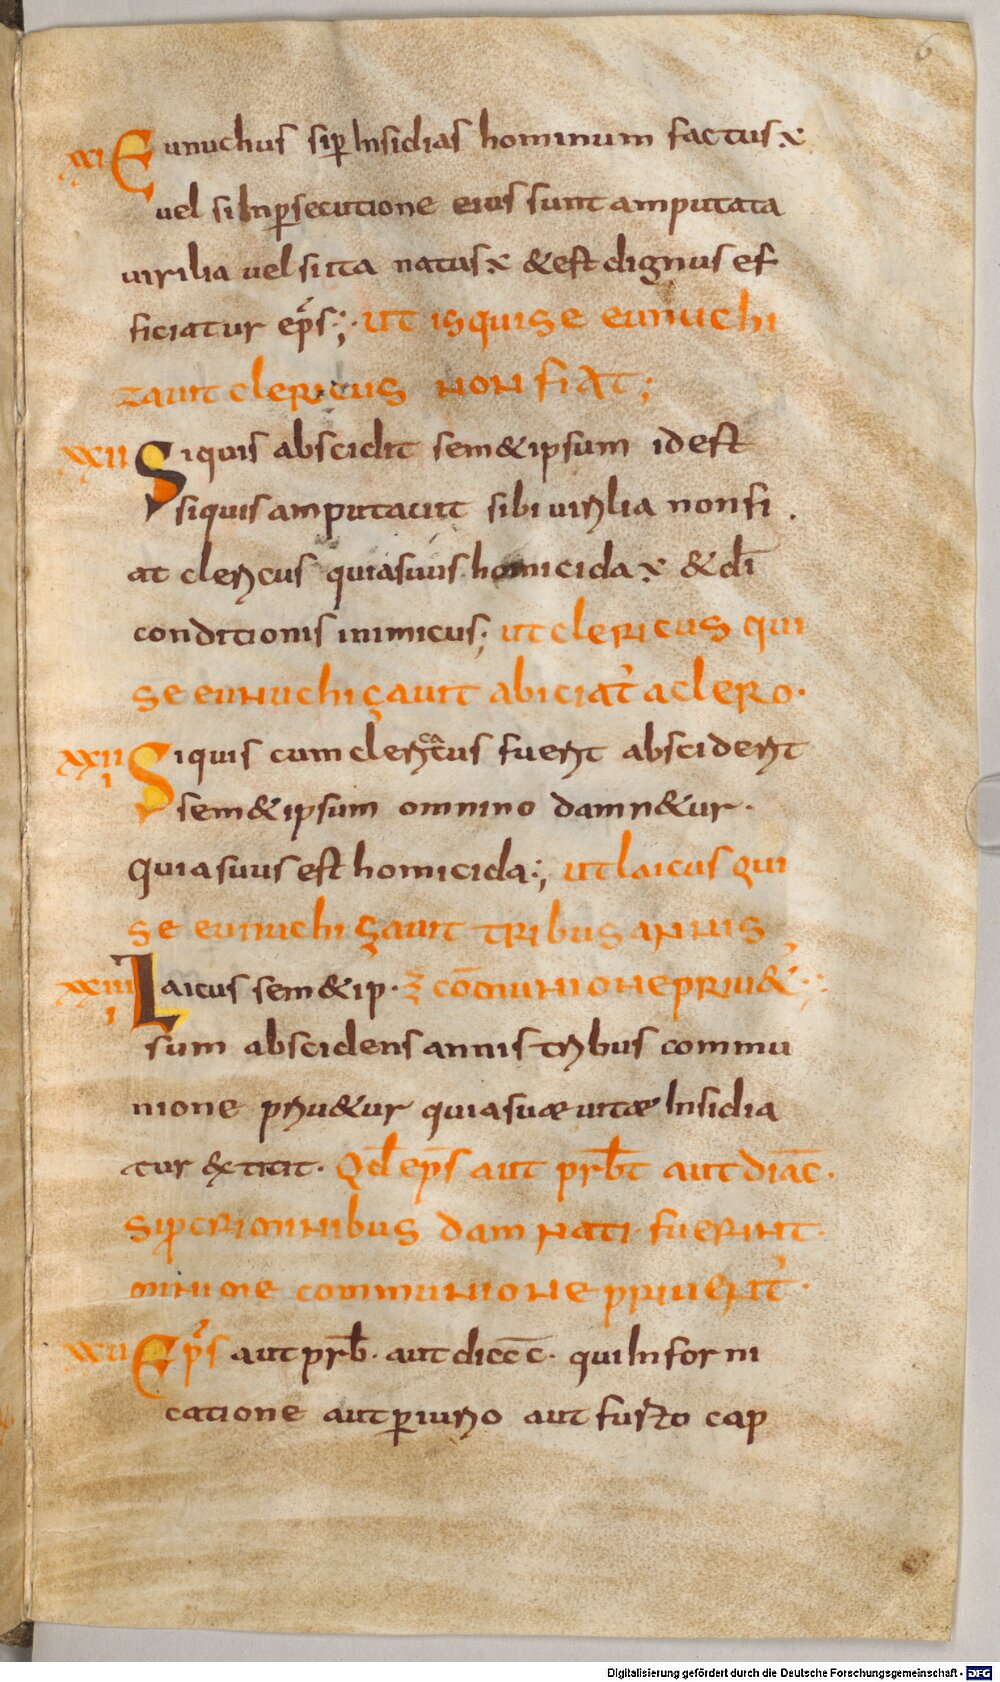 6
xxi Eunuchus si ꝑ Insidias hominum factus ÷
uel si In ꝑsecutione eius sunt amputata
uirilia uel si ita natus ÷ & est dignus ef
ficiatur ep̄s:; Ut is qui se eunuchi
zauit clericus non fiat;
xxii Si quis abscidit sem&ipsum id est
si quis amputauit sibi uirilia non fi
at clericus quia suus homicida ÷ & dī
conditionis inimicus; ut clericus qui
se eunuchi çauit abiciat̉ a clero·
xxiii Si quis cum clericus fuerit absciderit
sem&ipsum omnino damn&ur·
quia suus est homicida:; ut laicus qui
se eunuchi çauit tribus annis
xxiiii Laicus sem&ip· cōmunione priu&·
sum abscidens annis tribus commu
nione priu&ur quia suæ uitæ Insidia
tur extitit· Qd̄ ep̄s aut prb̄t aut diāc·
si ꝑ criminibus damnati fuerint·
minime communione priuent̉·
xxu Ep̄s aut prb̄· aut diēc· qui In forni
catione aut ꝑiurio aut furto cap
Digitalisierung gefördert durch die Deutsche Forschungsgemeinschaft - DFG